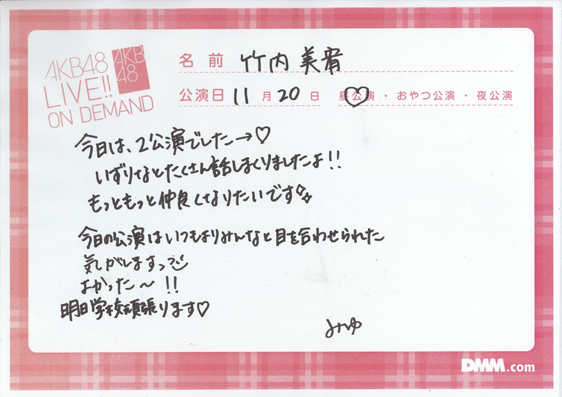 AKB48
LIVE!!
ON DEMAND
AKB
48
名前 竹内美宥
公演日 11月20日 昼公演・おやつ公演・夜公演
今日は、2公演でした→♡
いずりなとたくさん話しまくりましたよ!!
もっともっと仲良くなりたいです
今日の公演はいつもよりみんなと目を合わせられた
気がしますっ
よかった〜!!
明日学校頑張ります♡
みゆ
DMM.com